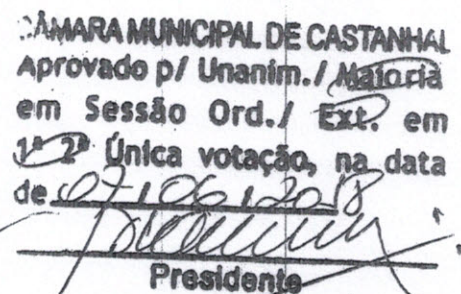 CÂMARA MUNICIPAL DE CASTANHAL
Aprovado p/ Unanim./ Maioria
em Sessão Ord./ Ext. em
1ª 2ª Única votação, na data
de 07/06/2018
Presidente